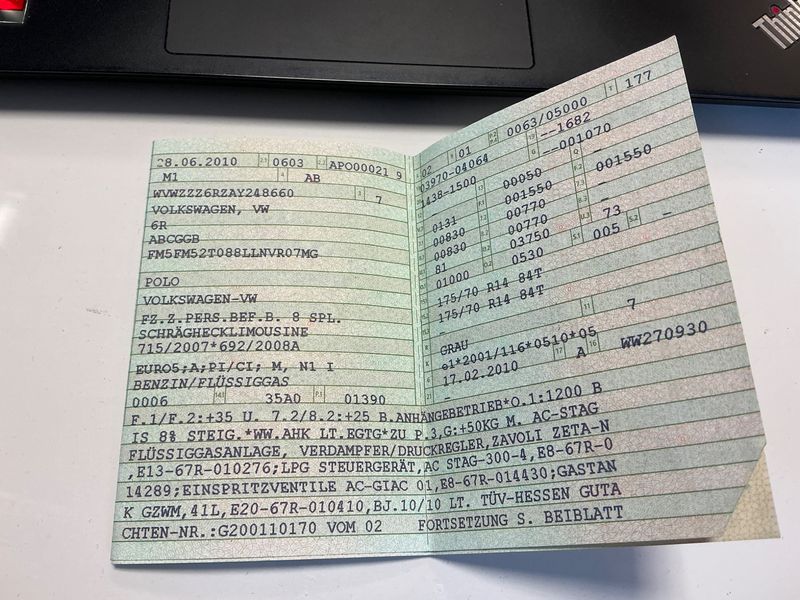 Thin
28.06.2010 0603 APO00021 9
M1 AB
WVWZZZ6RZAY248660 7
VOLKSWAGEN, VW
6R
ABCGGB
FM5FM52T088LLNVR07MG
POLO
VOLKSWAGEN-VW
FZ.Z.PERS.BEF.B. 8 SPL.
SCHRÄGHECKLIMOUSINE
715/2007*692/2008A
EURO5;A;PI/CI; M, N1 I
BENZIN/FLÜSSIGGAS
0006 35A0 01390
02 01 0063/05000 177
03970-04064 --1682
1438-1500 --001070
0131 00050 -
00830 001550 001550
00830 00770 -
81 00770 73 -
01000 03750 005
0530
175/70 R14 84T
175/70 R14 84T
GRAU 7
e1*2001/116*0510*05
17.02.2010 A WW270930
-
F.1/F.2:+35 U. 7.2/8.2:+25 B.ANHÄNGEBETRIEB*O.1:1200 B
IS 8% STEIG.*WW.AHK LT.EGTG*ZU P.3,G:+50KG M. AC-STAG
FLÜSSIGGASANLAGE, VERDAMPFER/DRUCKREGLER,ZAVOLI ZETA-N
,E13-67R-010276;LPG STEUERGERÄT,AC STAG-300-4,E8-67R-0
14289;EINSPRITZVENTILE AC-GIAC 01,E8-67R-014430;GASTAN
K GZWM,41L,E20-67R-010410,BJ.10/10 LT. TÜV-HESSEN GUTA
CHTEN-NR.:G200110170 VOM 02 FORTSETZUNG S. BEIBLATT